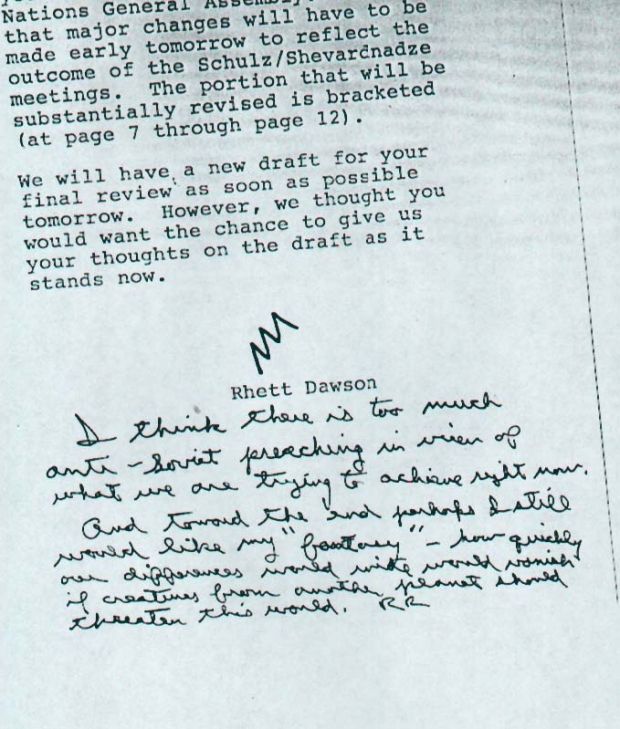 Nations General Assembly,
that major changes will have to be
made early tomorrow to reflect the
outcome of the Schulz/Shevardnadze
meetings. The portion that will be
substantially revised is bracketed
(at page 7 through page 12).
We will have a new draft for your
final review as soon as possible
tomorrow. However, we thought you
would want the chance to give us
your thoughts on the draft as it
stands now.
Rhett Dawson
I think there is too much
anti-Soviet preaching in view of
what we are trying to achieve right now.
And toward the end perhaps I still
would like my "fantasy" – how quickly
our differences world wide would vanish
if creatures from another planet should
threaten this world. RR